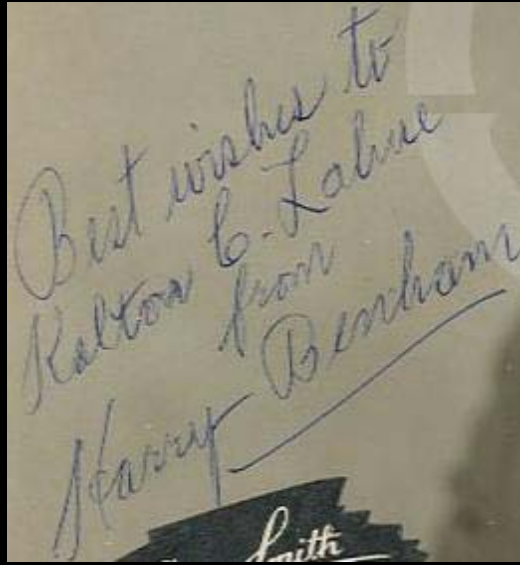 Best wishes to
Kalton C. Lahue
from
Harry Benham
Smith